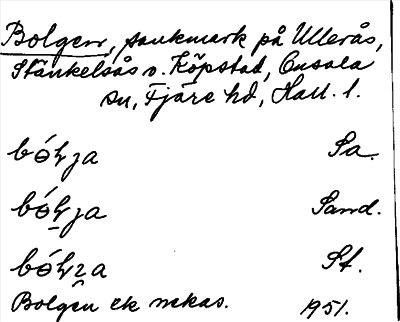 Bolgen, sankmark på Ullerås,
Stänkelsås o. Köpstad, Onsala
sn, Fjäre hd, Hall. l.
bóḷja Sa.
bóḷja Sand.
Sf.
Bolgen ek mekas. 1951.